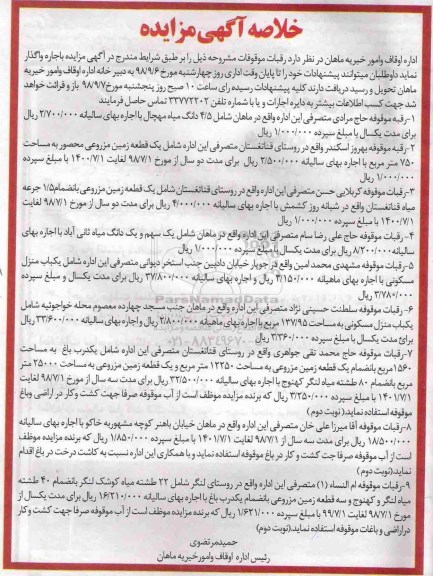 خلاصه آگهی مزایده
اداره اوقاف وامور خیریه ماهان در نظر دارد رقبات موقوفات مشروحه ذیل را بر طبق شرایط مندرج در آگهی مزایده باجاره واگذار
نماید داوطلبان میتوانند پیشنهادات خود را تا پایان وقت اداری روز چهارشنبه مورخ ۹۸/۹/۶ به دبیر خانه اداره اوقاف وامور خیریه
ماهان تحویل و رسید دریافت دارند کلیه پیشنهادات رسیده رای ساعت ۱۰ صبح روز پنجشنبه مورخ ۹۸/۹/۷ باز و قرائت خواهد
شد جهت کسب اطلاعات بیشتر به دایره اجارات و یا با شماره تلفن ۳۳۷۷۲۲۰۲ تماس حاصل فرمایند
۱-رقبه موقوفه حاج مرادی متصرفی این اداره واقع در ماهان شامل ۴/۵ دانگ میاه مهچال بااجاره بهای سالیانه ۲/۷۰۰/۰۰۰ ریال
برای مدت یکسال با مبلغ سپرده ۱/۰۰۰/۰۰۰ ریال
۲-رقبه موقوفه بهروز اسکندر واقع در روستای قناتغستان متصرفی این اداره شامل یک قطعه زمین مزروعی محصور به مساحت
۷۵۰ متر مربع با اجاره بهای سالیانه ۲/۵۰۰/۰۰۰ ریال برای مدت دو سال از مورخ ۹۸/۷/۱ لغایت ۱۴۰۰/۷/۱ با مبلغ سپرده
۱/۰۰۰/۰۰۰ ریال
۳-رقبات موقوفه کربلایی حسن متصرفی این اداره واقع در روستای قناتغستان شامل یک قطعه زمین مزروعی بانضمام ۱/۵ جرعه
میاه قناتغستان واقع در شبانه روز کشمش با اجاره بهای سالیانه ۴/۰۰۰/۰۰۰ ریال برای مدت دو سال از مورخ ۹۸/۷/۱ لغایت
۱۴۰۰/۷/۱ با مبلغ سپرده ۱/۰۰۰/۰۰۰ ریال
۴-رقبات موقوفه حاج علی رضا سام متصرفی این اداره واقع در ماهان شامل یک سهم و یک دانگ میاه ثانی آباد با اجاره بهای
سالیانه ۸/۲۰۰/۰۰۰ ریال برای مدت یکسال با مبلغ سپرده ۱/۰۰۰/۰۰۰ ریال
۵-رقبات موقوفه مشهدی محمد امین واقع در جوپار خیابان دادبین جنب استخر دیوانی متصرفی این اداره شامل یکباب منزل
مسکونی با اجاره بهای ماهیانه ۳/۱۵۰/۰۰۰ ریال و اجاره بهای سالیانه ۳۷/۸۰۰/۰۰۰ ریال برای مدت یکسال و مبلغ سپرده
۳/۷۸۰/۰۰۰ ریال
۶-رقبات موقوفه سلطنت حسینی نژاد متصرفی این اداره واقع در ماهان جنب مسجد چهارده معصوم محله خواجوئیه شامل
یکباب منزل مسکونی به مساحت ۱۳۷/۹۵ مربع با اجاره بهای ماهیانه ۲/۸۰۰/۰۰۰ ریال واجاره بهای سالیانه ۳۳/۶۰۰/۰۰۰ ریال
برای مدت یکسال با مبلغ سپرده ۳/۳۶۰/۰۰۰ ریال
۷-رقبات موقوفه حاج محمد تقی جواهری واقع در روستای قناتغستان متصرفی این اداره شامل یکدرب باغ به مساحت
۱۵۶۰ مربع بانضمام یک قطعه زمین مزروعی به مساحت ۱۲۲۵۰ متر مربع و یک قطعه زمین مزروعی به مساحت ۲۵۰۰۰ متر
مربع بانضمام ۸۰ طشته میاه لنگر کهنوج با اجاره بهای سالیانه ۳۲/۵۰۰/۰۰۰ ریال برای مدت سه سال از مورخ ۹۸/۷/۱ لغایت
۱۴۰۱/۷/۱ با مبلغ سپرده ۳/۲۵۰/۰۰۰ ریال که برنده مزایده موظف است از آب موقوفه صرفا جهت کشت وکار در اراضی وباغ
موقوفه استفاده نماید.(نوبت دوم)
۸-رقبات موقوفه آقا میرزا علی خان متصرفی این اداره واقع در ماهان خیابان باهنر کوچه مشهوربه خاکو با اجاره بهای سالیانه
۱۸/۵۰۰/۰۰۰ ریال برای مدت سه سال از مورخ ۹۸/۷/۱ لغایت ۱۴۰۱/۷/۱ با مبلغ سپرده ۱/۸۵۰/۰۰۰ ریال که برنده مزایده موظف
است از آب موقوفه صرفا جت کشت و کار در باغ موقوفه استفاده نماید و با همکاری این اداره نسبت به کاشت درخت در باغ اقدام
نماید.(نوبت دوم)
۹-رقبات موقوفه ام النساء (۱) متصرفی این اداره واقع در روستای لنگر شامل ۲۲ طشته میاه کوشک لنگر بانضمام ۴۰ طشته
میاه لنگر و کهنوج و سه قطعه زمین مزروعی بانضمام یکدرب باغ با اجاره بهای سالیانه ۱۶/۲۱۰/۰۰۰ ریال برای مدت یکسال از
مورخ ۹۸/۷/۱ لغایت ۹۹/۷/۱ با مبلغ سپرده ۱/۶۲۱/۰۰۰ ریال که برنده مزایده موظف است از آب موقوفه صرفا جهت کشت و کار
دراراضی و باغات موقوفه استفاده نماید.(نوبت دوم)
حمیدمرتضوی
رئیس اداره اوقاف وامورخیریه ماهان
ParsNamadData
۰۲۱-۸۸۳۴۹۶۷۰